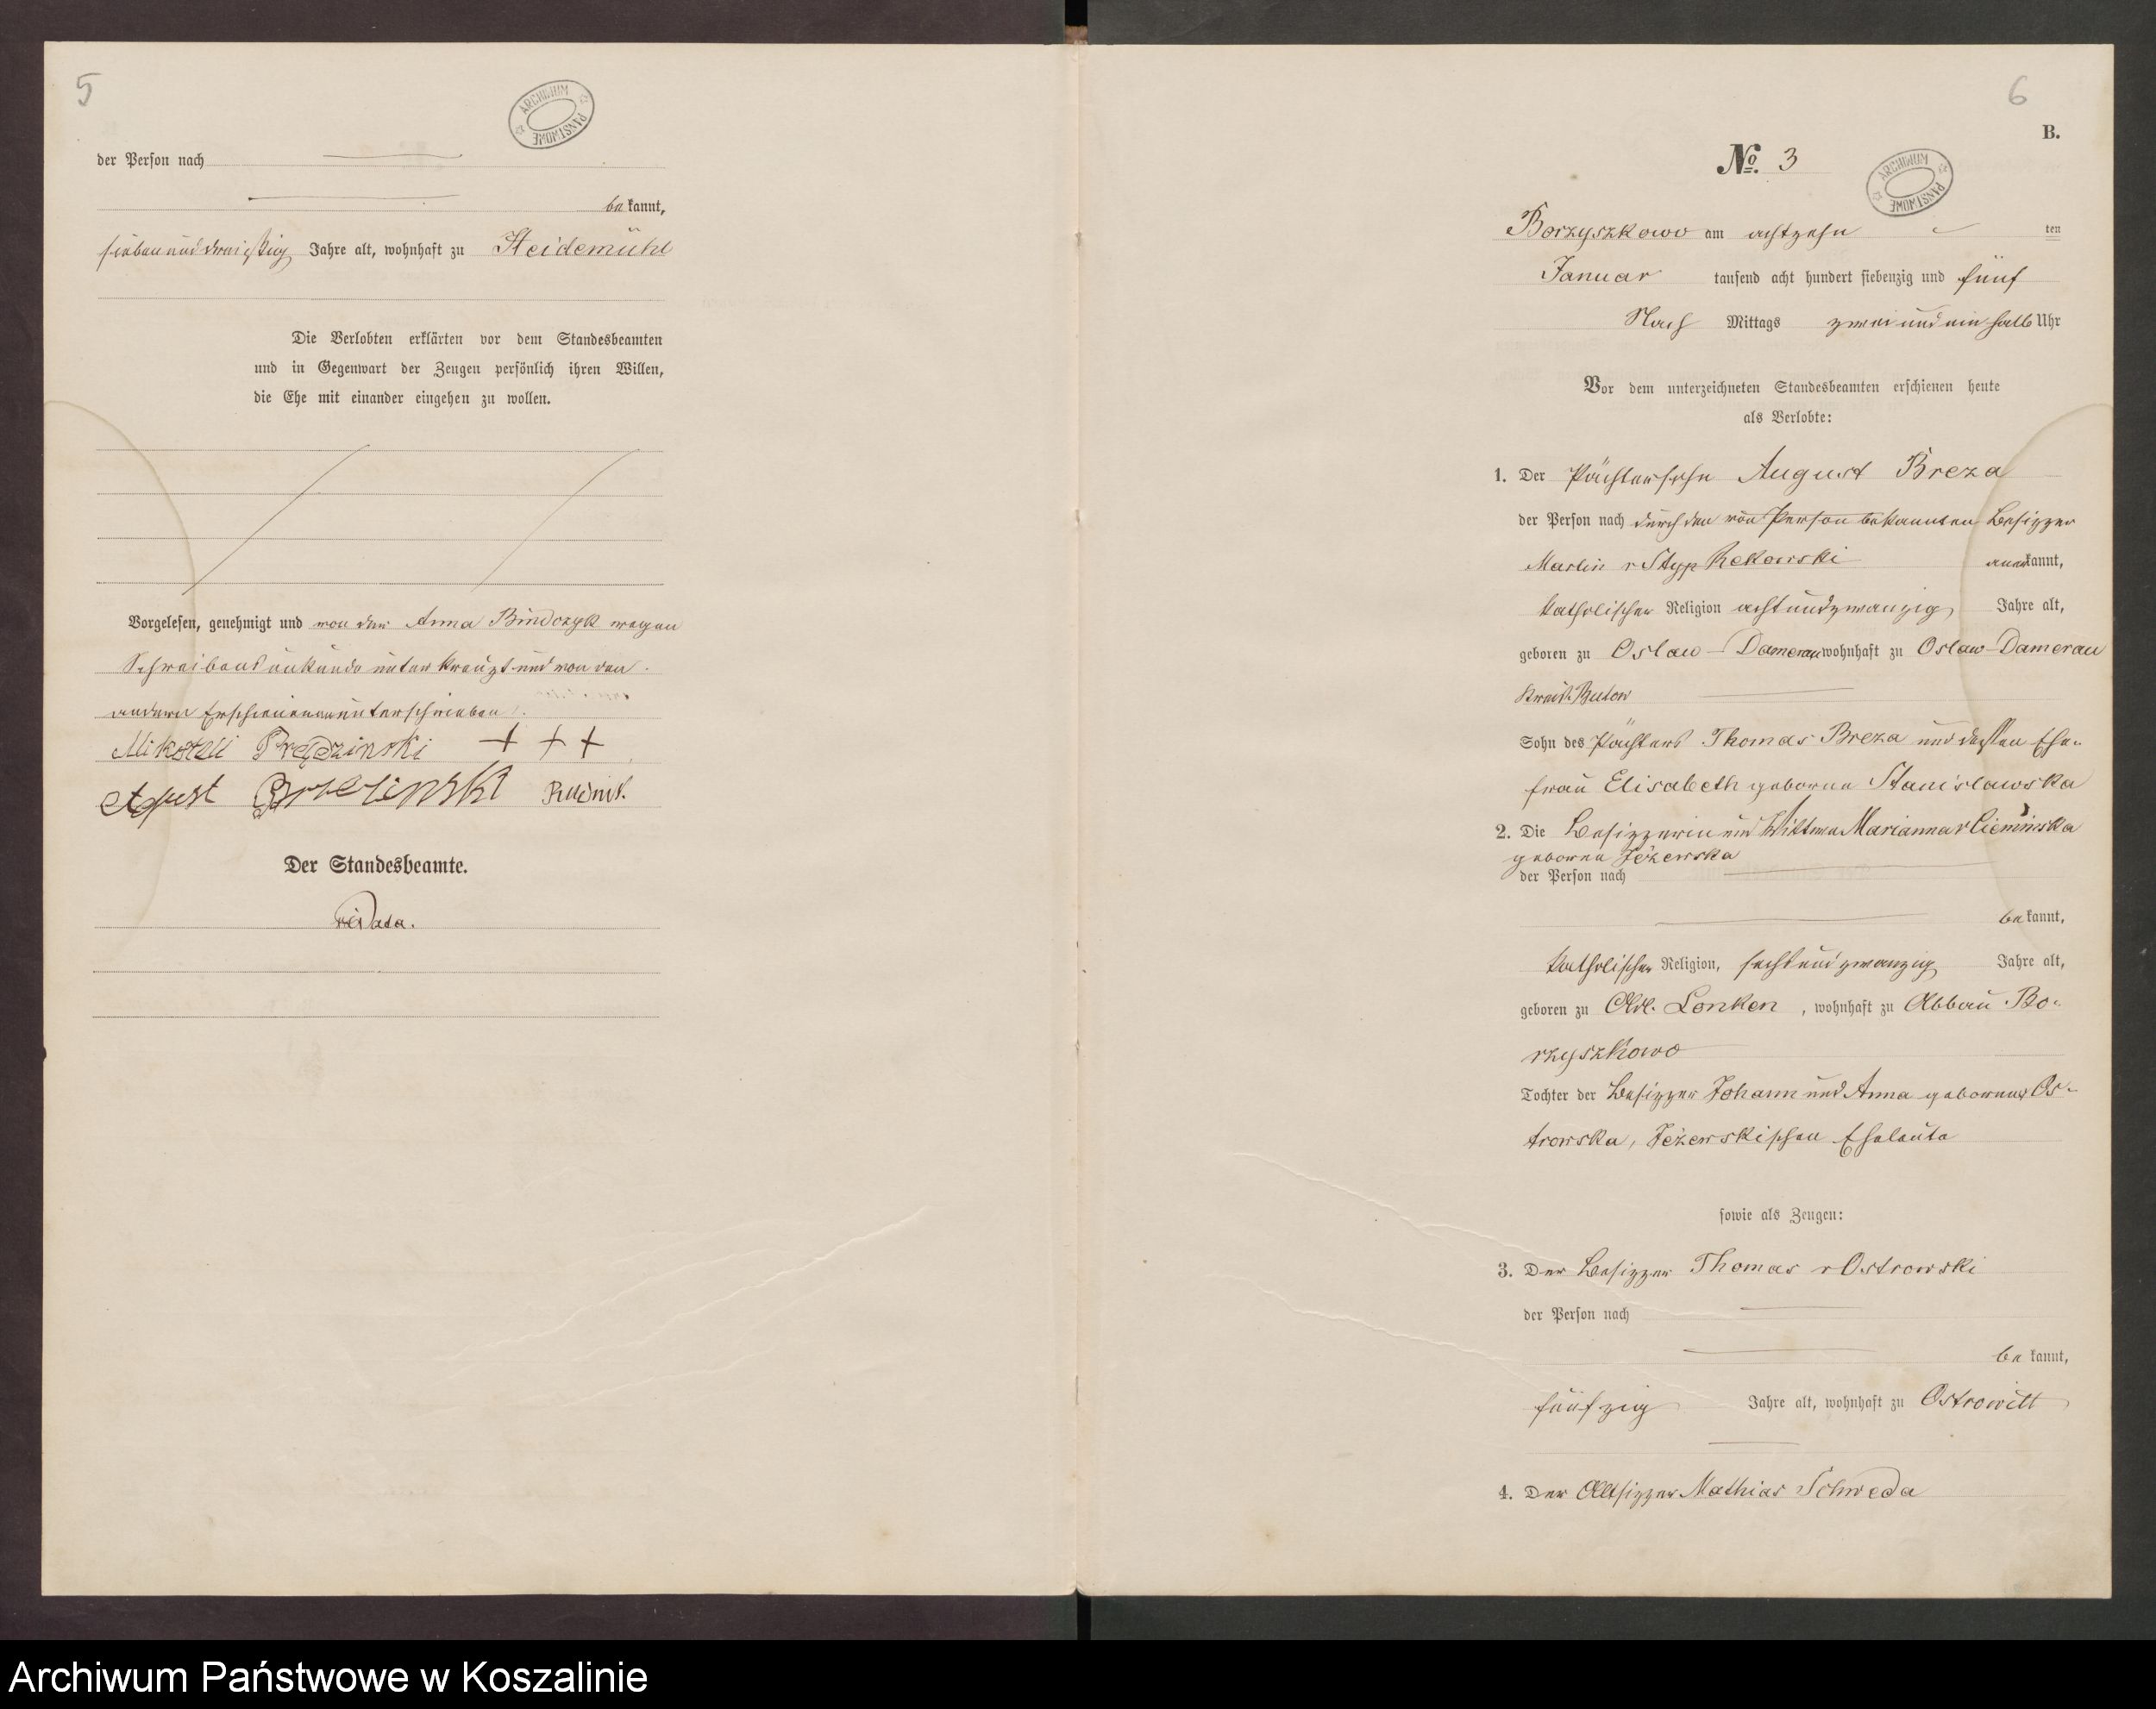 5
ARCHIWUM PAŃSTWOWE
der Person nach
bekannt,
siebenunddreißig Jahre alt, wohnhaft zu Heidemühl
Die Verlobten erklärten vor dem Standesbeamten
und in Gegenwart der Zeugen persönlich ihren Willen,
die Ehe mit einander eingehen zu wollen.
Vorgelesen, genehmigt und von der Anna Bindczyk wegen
Schreibensunkunde unterkreuzt und von den
andern Erschienenen unterschrieben.
Prędzinski + + +
Rudnik.
Der Standesbeamte.
6
B.
ARCHIWUM PAŃSTWOWE
No. 3
Borzyszkowo am achtzehn ten
Januar tausend acht hundert siebenzig und fünf
Nach Mittags zweiundein halb Uhr
Vor dem unterzeichneten Standesbeamten erschienen heute
als Verlobte:
1. Der Pächtersohn August Breza
der Person nach durch den von Person bekannten Besitzer
Martin v Styp Rekowski anerkannt,
katholischer Religion achtundzwanzig Jahre alt,
geboren zu Oslau-Damerau wohnhaft zu Oslaw-Damerau
Kreis Butow
Sohn des Pächters Thomas Breza und dessen Ehe-
frau Elisabeth geborne Stanislawska
2. Die Besitzerin und Wittwe Marianna v Cieminska
geborne Jeżewska
der Person nach
bekannt,
katholischer Religion, sechsundzwanzig Jahre alt,
geboren zu Adl. Lonken, wohnhaft zu Abbau Bo-
rzyszkowo
Tochter der Besitzer Johann und Anna geborne v Os-
trowska, Jeżewskischen Eheleute
sowie als Zeugen:
3. Der Besitzer Thomas v Ostrowski
der Person nach
bekannt,
fünfzig Jahre alt, wohnhaft zu Ostrowitt
4. Der Altsitzer Mathias Schweda
Archiwum Państwowe w Koszalinie